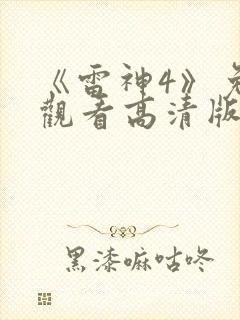 《雷神4》免
觀看高清版
黑漆嘛咕咚